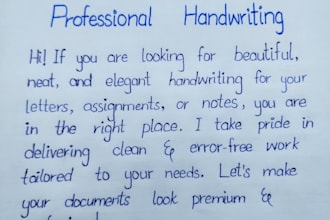 Professional Handwriting
Hi! If you are looking for beautiful,
neat, and elegant handwriting for your
letters, assignments, or notes, you are
in the right place. I take pride in
delivering clean & error-free work
tailored to your needs. Let's make
your documents look premium &